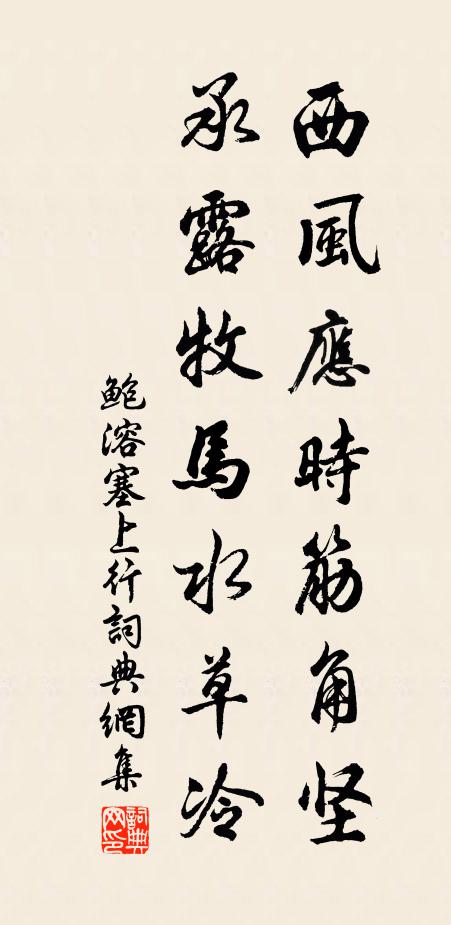 西風應時筋角坚
承露牧馬水草冷
鲍溶塞上行詞典網集
詞典網印